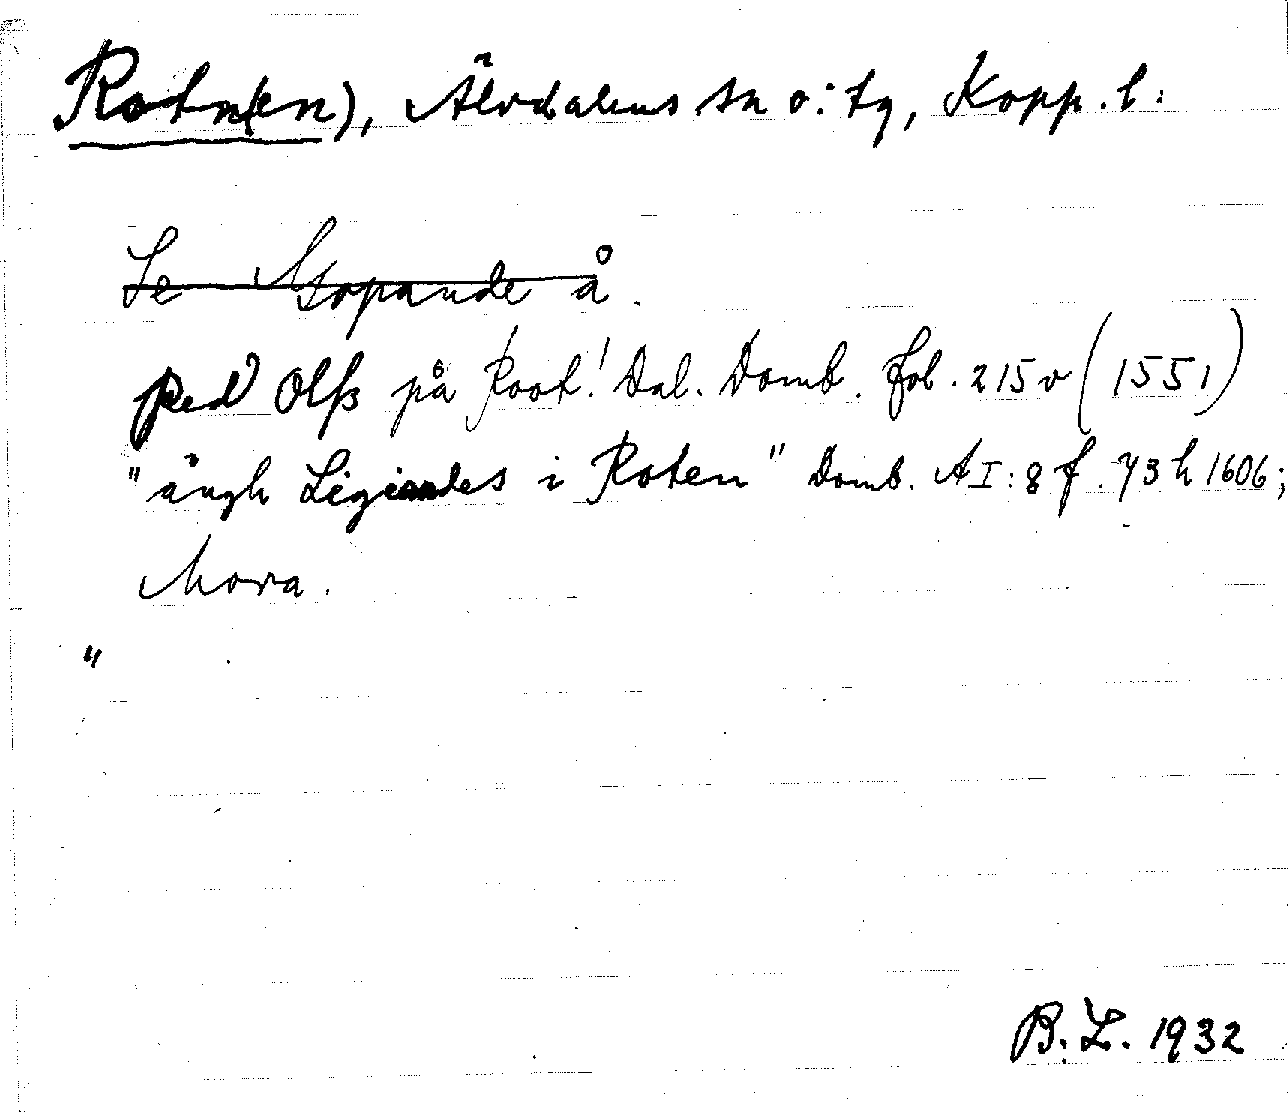 Rotn(en), Älvdalens sn o. tg, Kopp. l:
Se Gopande å.
Ped Olß på Root! Dal. Domb. fol. 215v (1551)
"ängh Ligiandes i Roten" Domb. AI:8 f. 73 h 1606;
Mora.
"
B.L. 1932